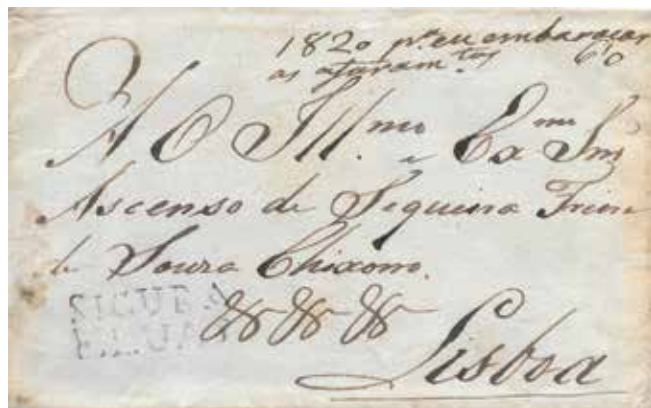 1820 p.ª eu embaraçar
as aforam.tos 60
AO Ill.mo e Ex.mo Snr
Ascenso de Siqueira Freire
de Souza Chixorro.
SEGURA
Lisboa